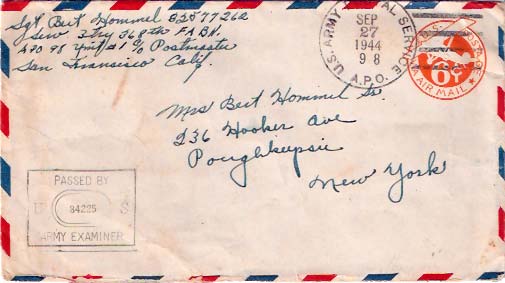 Sgt Bert Hommel 32577262
Serv Btry 368th FA BN.
APO 98 Unit #1 c/o Postmaster
San Francisco Calif.
U.S. ARMY POSTAL SERVICE
SEP
27
1944
9 8
A.P.O.
6
VIA AIR MAIL
Mrs Bert Hommel Sr.
236 Hooker Ave
Poughkeepsie
New York
PASSED BY
U 34225 S
ARMY EXAMINER